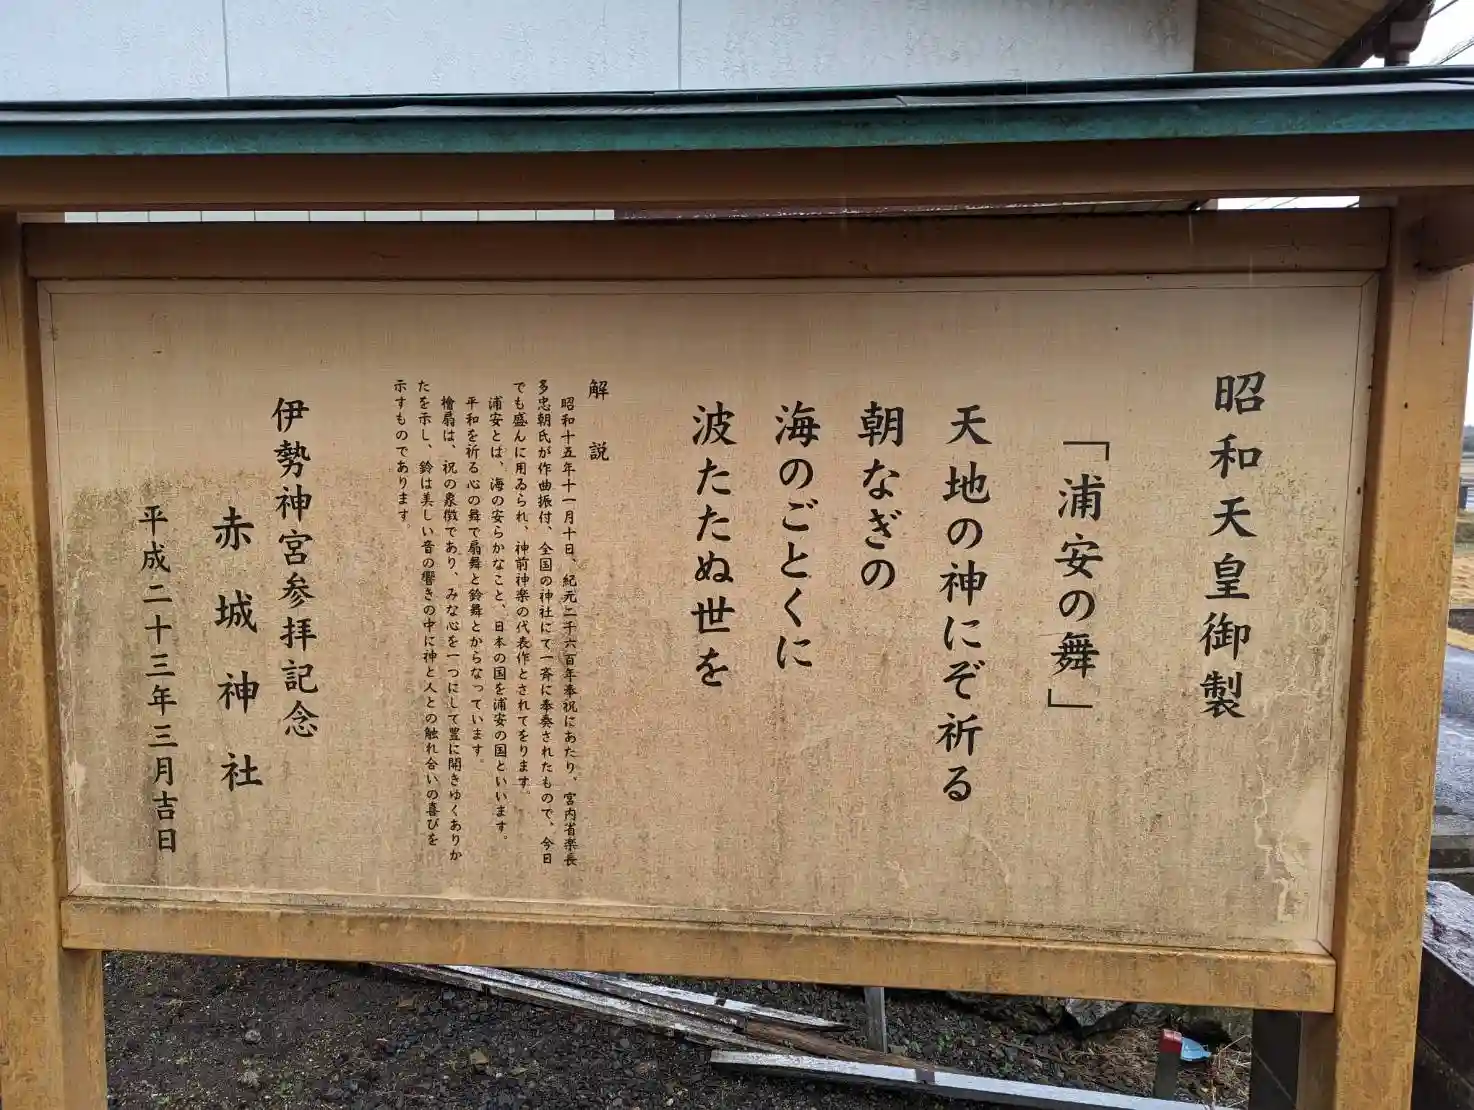 昭和天皇御製
「浦安の舞」
天地の神にぞ祈る
朝なぎの
海のごとくに
波たたぬ世を
解説
昭和十五年十一月十日、紀元二千六百年奉祝にあたり、宮内省楽長
多忠朝氏が作曲振付、全国の神社にて一斉に奉奏されたもので、今日
でも盛んに用ゐられ、神前神楽の代表作とされてをります。
浦安とは、海の安らかなこと、日本の国を浦安の国といいます。
平和を祈る心の舞で扇舞と鈴舞とからなっています。
檜扇は、祝の象徴であり、みな心を一つにして豊に開きゆくありか
たを示し、鈴は美しい音の響きの中に神と人との触れ合いの喜びを
示すものであります。
伊勢神宮参拝記念
赤城神社
平成二十三年三月吉日